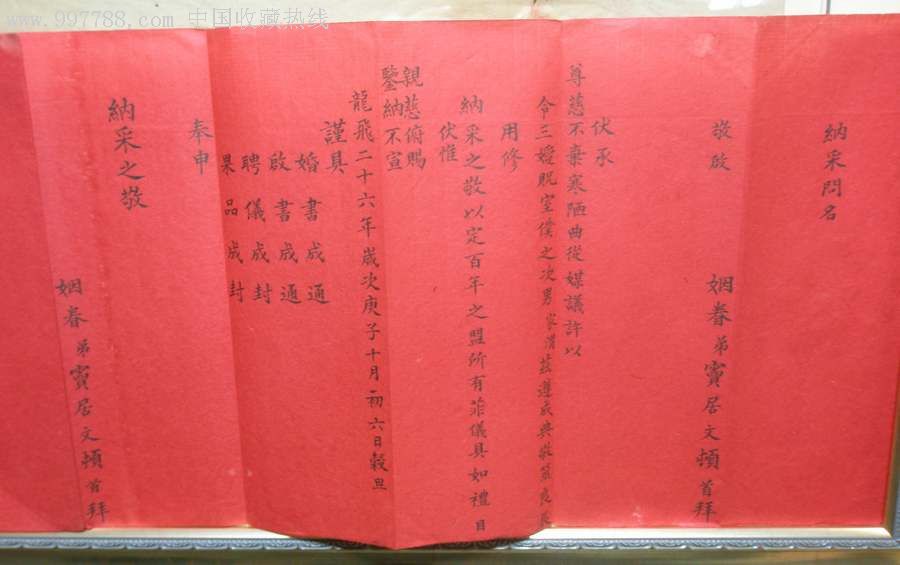 www.997788.com 中国收藏热线
納采問名
敬啟
姻眷弟竇居文頓首拜
伏承
尊慈不棄寒陋曲從媒議許以
令三媛貺室僕之次男家渭茲遵成典敬筮良辰
用修
納采之敬以定百年之盟所有菲儀具如禮目
伏惟
親慈俯賜
鑒納不宣
龍飛二十六年歲次庚子十月初六日穀旦
謹具
婚書成通
啟書成通
聘儀成封
果品成封
奉申
納采之敬
姻眷弟竇居文頓首拜